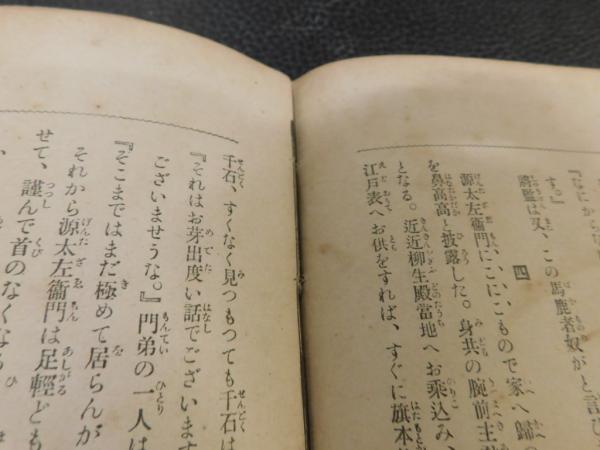 『なにからな
す。』
謁監は又、この馬鹿者奴がと言ひ
四
源太左衞門に、こに、こもので家へ歸つ
を鼻高高と披露した。身共の腕前主
となる。近近柳生殿當地へお乘込み、
江戸表へお供をすれば、すぐに旗本
千石、すくなく見つもつても千石は
『それはお芽出度い話でございます
ございませうな。』門弟の一人は
『そこまではまだ極めて居らんが
それから源太左衞門は足輕ども
せて、謹んで首のなくなる